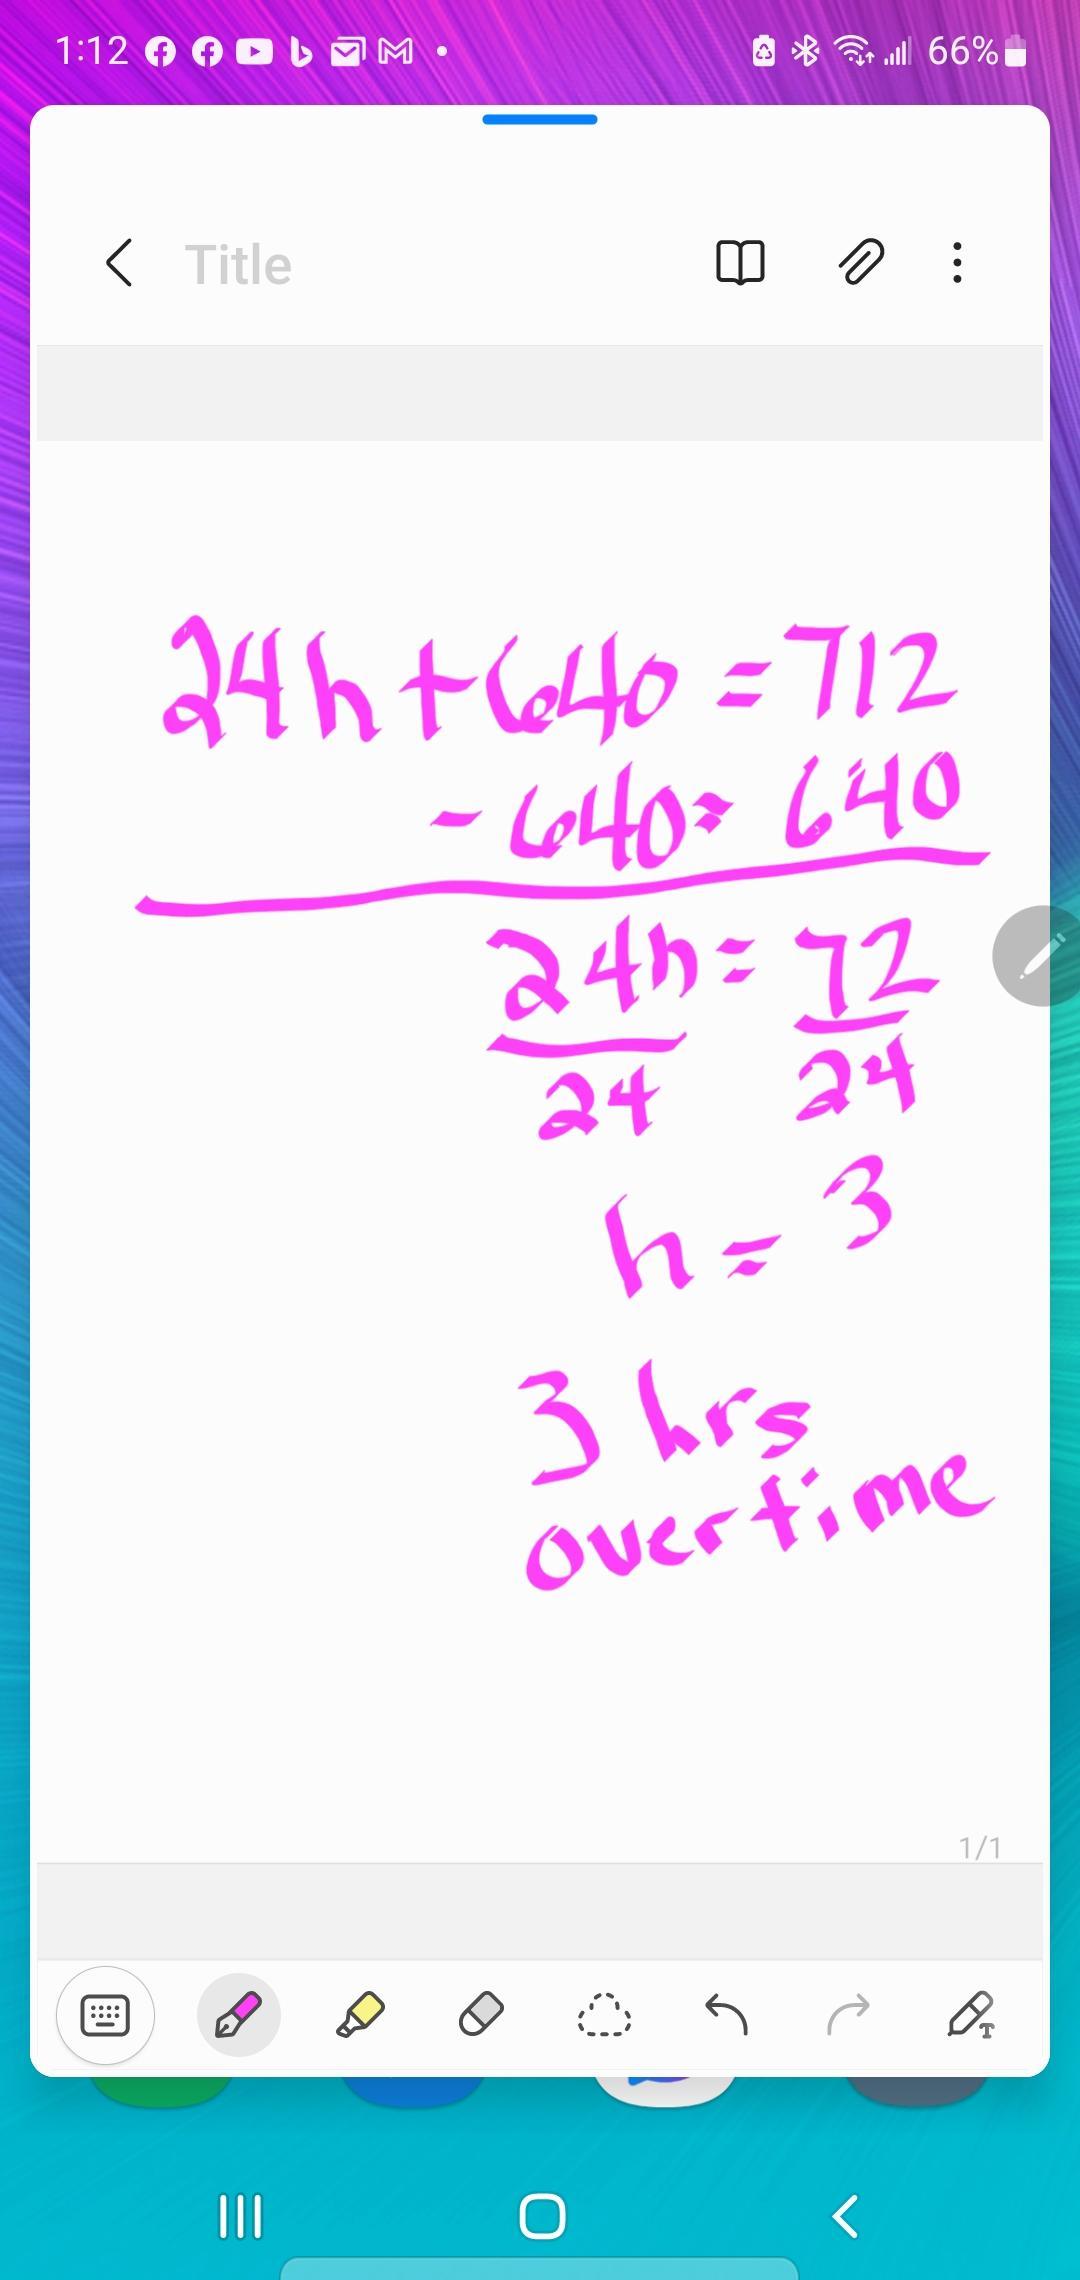 1:12 66%
Title
24h+640=712
-640= 640
24h = 72
24 24
h = 3
3 hrs
overtime
1/1